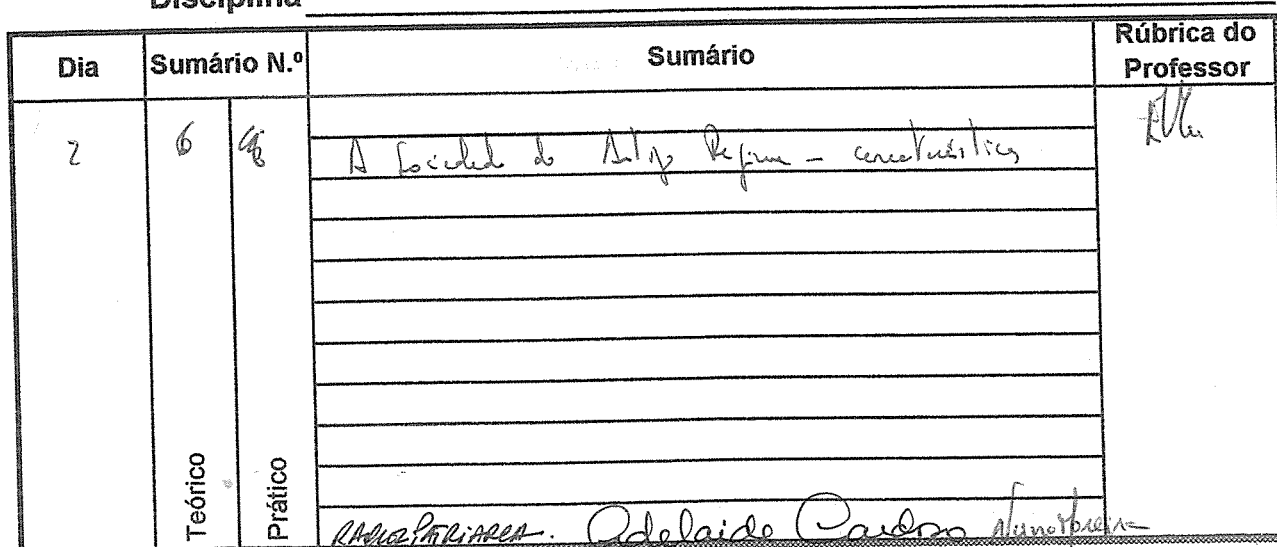 Disciplina
Dia Sumário N.º Sumário Rúbrica do Professor
2 6 A Sociedade do Antigo Regime - características
Teórico Prático
Adelaide Cardoso Nuno Moreira